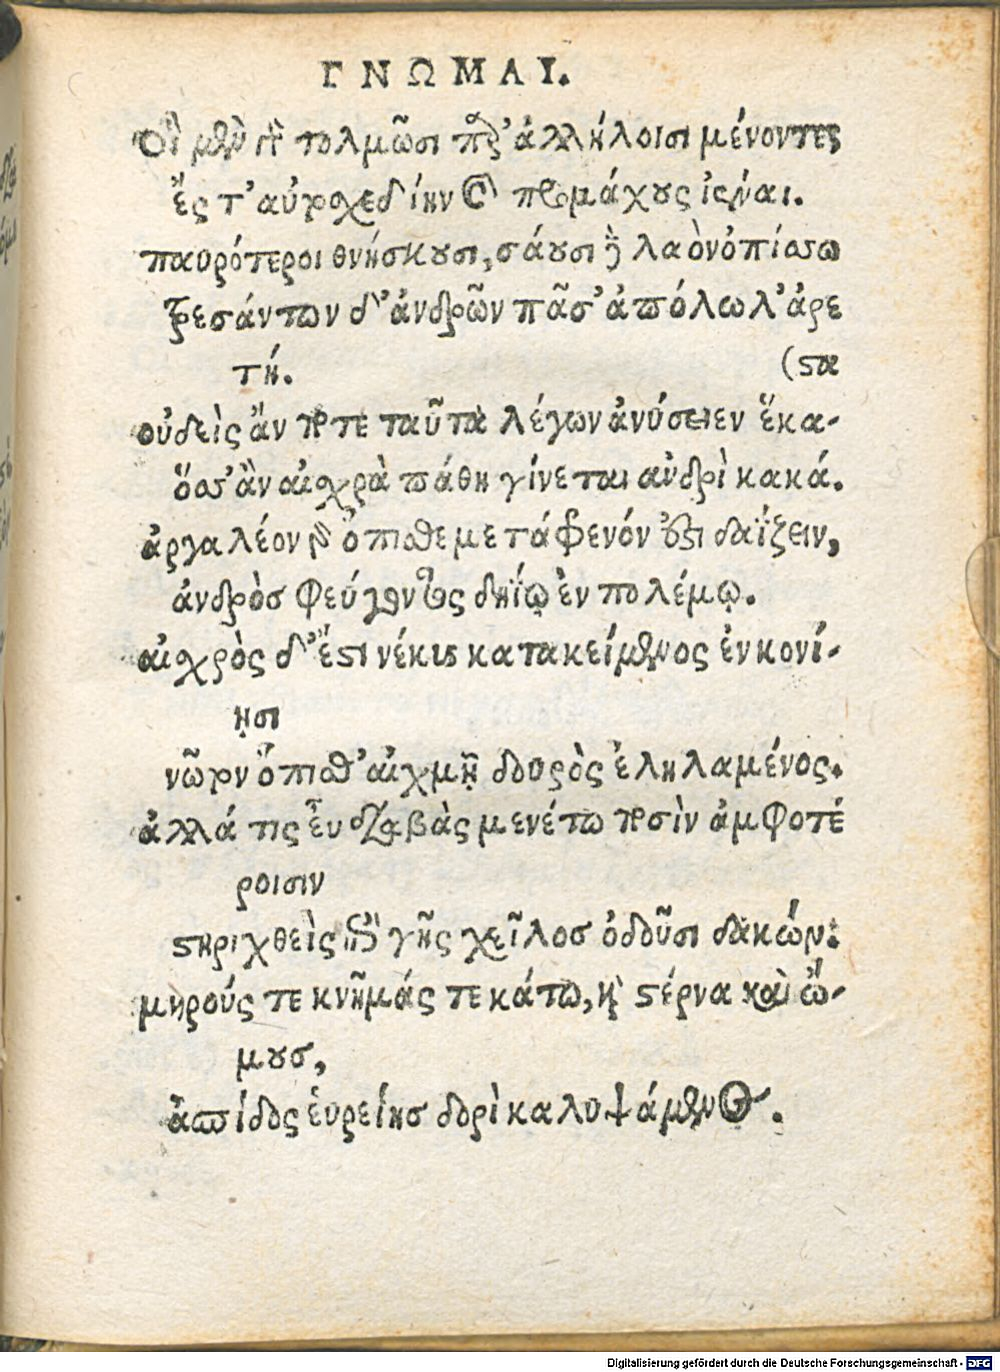 ΓΝΩΜΑΙ.
Οἳ μὲν γὰρ τολμῶσι παρ' ἀλλήλοισι μένοντες
ἔς τ' αὐτοσχεδίην καὶ προμάχους ἰέναι.
παυρότεροι θνήσκουσι, σάουσι δὲ λαὸν ὀπίσσω
τρεσάντων δ' ἀνδρῶν πᾶσ' ἀπόλωλ' ἀρε
τή. (στα
οὐδεὶς ἄν ποτε ταῦτα λέγων ἀνύσειεν ἕκα-
ὅσσ' ἂν αἰσχρὰ πάθη γίνεται ἀνδρὶ κακά.
ἀργαλέον γὰρ ὄπισθε μετάφρενόν ἐστι δαΐζειν,
ἀνδρὸσ φεύγοντος δηΐῳ ἐν πολέμῳ.
αἰσχρὸς δ' ἔστι νέκυς κατακείμενος ἐν κονί-
ῃσι
νῶτον ὄπισθ' αἰχμῇ δουρὸς ἐληλαμένος.
ἀλλά τις εὖ διαβὰς μενέτω ποσὶν ἀμφοτέ
ροισιν
στηριχθεὶς ἐπὶ γῆς χεῖλοσ ὀδοῦσι δακών.
μηρούς τε κνήμάς τε κάτω, καὶ στέρνα καὶ ὤ-
μουσ,
ἀσπίδος εὐρείησ δορὶ καλυψάμενος.